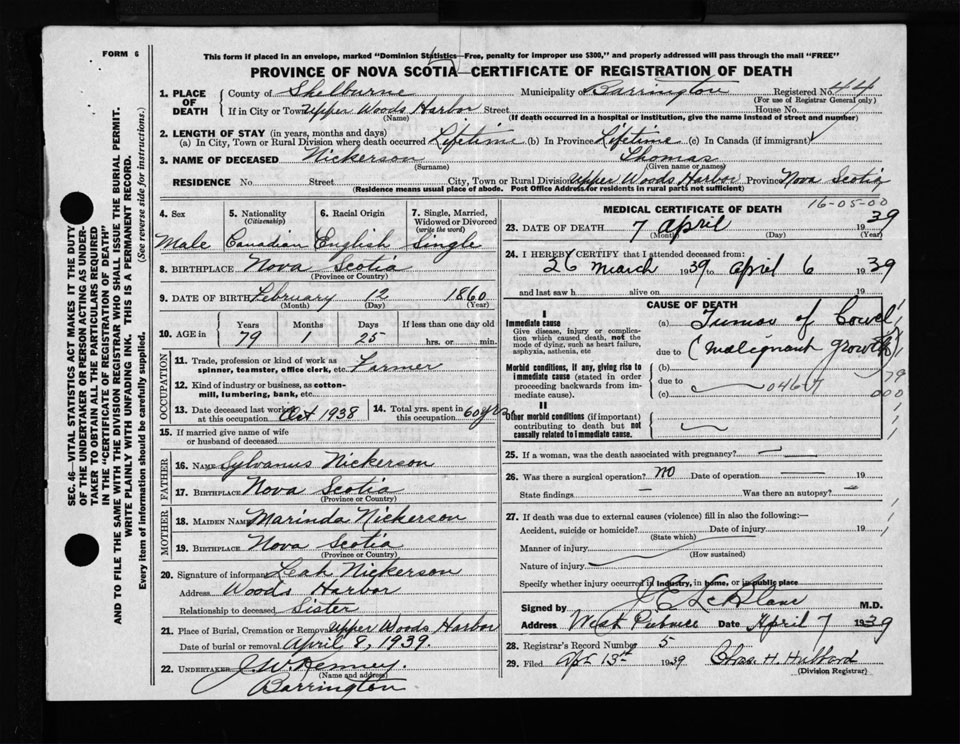 FORM 6
This form if placed in an envelope, marked "Dominion Statistics—Free, penalty for improper use $300," and properly addressed will pass through the mail "FREE"
PROVINCE OF NOVA SCOTIA—CERTIFICATE OF REGISTRATION OF DEATH
SEC. 46—VITAL STATISTICS ACT MAKES IT THE DUTY
OF THE UNDERTAKER OR PERSON ACTING AS UNDER-
TAKER TO OBTAIN ALL THE PARTICULARS REQUIRED
IN THE "CERTIFICATE OF REGISTRATION OF DEATH"
AND TO FILE THE SAME WITH THE DIVISION REGISTRAR WHO SHALL ISSUE THE BURIAL PERMIT.
WRITE PLAINLY WITH UNFADING INK. THIS IS A PERMANENT RECORD.
Every item of information should be carefully supplied. (See reverse side for Instructions.)
1. PLACE OF DEATH County of Shelburne Municipality Barrington Registered No. 44
(For use of Registrar General only)
If in City or Town Upper Woods Harbor Street House No.
(Name) (If death occurred in a hospital or institution, give the name instead of street and number)
2. LENGTH OF STAY (in years, months and days)
(a) In City, Town or Rural Division where death occurred Lifetime (b) In Province Lifetime (c) In Canada (if immigrant)
3. NAME OF DECEASED Nickerson Thomas
(Surname) (Given name or names)
RESIDENCE No. Street City, Town or Rural Division Upper Woods Harbor Province Nova Scotia
(Residence means usual place of abode. Post Office Address for residents in rural parts not sufficient)
4. Sex 5. Nationality (Citizenship) 6. Racial Origin 7. Single, Married, Widowed or Divorced (write the word)
Male Canadian English Single
8. BIRTHPLACE Nova Scotia
(Province or Country)
9. DATE OF BIRTH February 12 1860
(Month) (Day) (Year)
10. AGE in Years Months Days If less than one day old
79 1 25 hrs. or min.
OCCUPATION
11. Trade, profession or kind of work as
spinner, teamster, office clerk, etc. Farmer
12. Kind of industry or business, as cotton-
mill, lumbering, bank, etc.
13. Date deceased last worked at this occupation Oct 1938 14. Total yrs. spent in this occupation 60 yrs.
15. If married give name of wife
or husband of deceased
FATHER
16. NAME Sylvanus Nickerson
17. BIRTHPLACE Nova Scotia
(Province or Country)
MOTHER
18. MAIDEN NAME Marinda Nickerson
19. BIRTHPLACE Nova Scotia
(Province or Country)
20. Signature of informant Leah Nickerson
Address Woods Harbor
Relationship to deceased Sister
21. Place of Burial, Cremation or Removal Upper Woods Harbor
Date of burial or removal April 8, 1939.
22. UNDERTAKER J. W. Kenney.
(Name and address)
Barrington
MEDICAL CERTIFICATE OF DEATH 16-05-00
23. DATE OF DEATH 7 April 1939
(Month) (Day) (Year)
24. I HEREBY CERTIFY that I attended deceased from:
26 March 1939 to April 6 1939
and last saw h alive on 19
CAUSE OF DEATH
I
Immediate cause
Give disease, injury or complica-
tion which caused death, not the
mode of dying, such as heart failure,
asphyxia, asthenia, etc
(a) Tumor of bowel
due to (malignant growth)
Morbid conditions, if any, giving rise to
immediate cause (stated in order
proceeding backwards from im-
mediate cause).
(b)
due to
(c)
II
Other morbid conditions (if important)
contributing to death but not
causally related to immediate cause.
25. If a woman, was the death associated with pregnancy?
26. Was there a surgical operation? No Date of operation 19
State findings Was there an autopsy?
27. If death was due to external causes (violence) fill in also the following:—
Accident, suicide or homicide? Date of injury 19
(State which)
Manner of injury
(How sustained)
Nature of injury
Specify whether injury occurred in industry, in home, or in public place
Signed by M.D.
Address West Pubnico Date April 7 1939
28. Registrar's Record Number 5
29. Filed Apr 13th 1939 Chas. H. Hubbard
(Division Registrar)